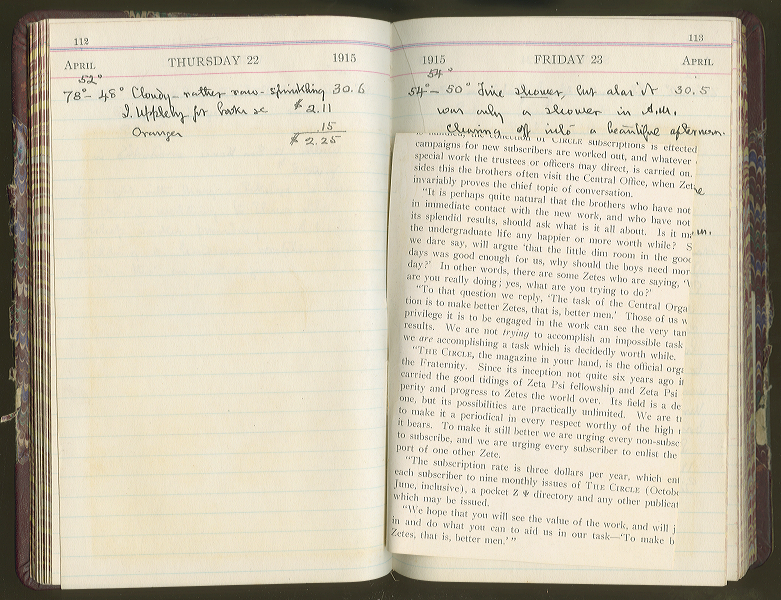 112
APRIL THURSDAY 22 1915
52°
78°- 48° Cloudy - rather raw - sprinkling 30.6
I. Appleby for books &c $ 2.11
Oranges .15
$ 2.25
113
1915 FRIDAY 23 APRIL
54°
54°- 50° Fine shower, but alas it 30.5
was only a shower in A.M.
Clearing off into a beautiful afternoon.
of CIRCLE subscriptions is effected
campaigns for new subscribers are worked out, and whatever
special work the trustees or officers may direct, is carried on.
sides this the brothers often visit the Central Office, when Zet
invariably proves the chief topic of conversation.
"It is perhaps quite natural that the brothers who have not
in immediate contact with the new work, and who have not
its splendid results, should ask what is it all about. Is it ma
the undergraduate life any happier or more worth while? S
we dare say, will argue 'that the little dim room in the good
days was good enough for us, why should the boys need mor
day?' In other words, there are some Zetes who are saying, '
are you really doing; yes, what are you trying to do?'
"To that question we reply, 'The task of the Central Orga
tion is to make better Zetes, that is, better men.' Those of us w
privilege it is to be engaged in the work can see the very tan
results. We are not trying to accomplish an impossible task
we are accomplishing a task which is decidedly worth while.
"THE CIRCLE, the magazine in your hand, is the official orga
the Fraternity. Since its inception not quite six years ago it
carried the good tidings of Zeta Psi fellowship and Zeta Psi
perity and progress to Zetes the world over. Its field is a de
one, but its possibilities are practically unlimited. We are t
to make it a periodical in every respect worthy of the high
it bears. To make it still better we are urging every non-subsc
to subscribe, and we are urging every subscriber to enlist the
port of one other Zete.
"The subscription rate is three dollars per year, which ent
each subscriber to nine monthly issues of THE CIRCLE (Octobe
June, inclusive), a pocket Z Ψ directory and any other publicat
which may be issued.
"We hope that you will see the value of the work, and will j
in and do what you can to aid us in our task—'To make b
Zetes, that is, better men.' "